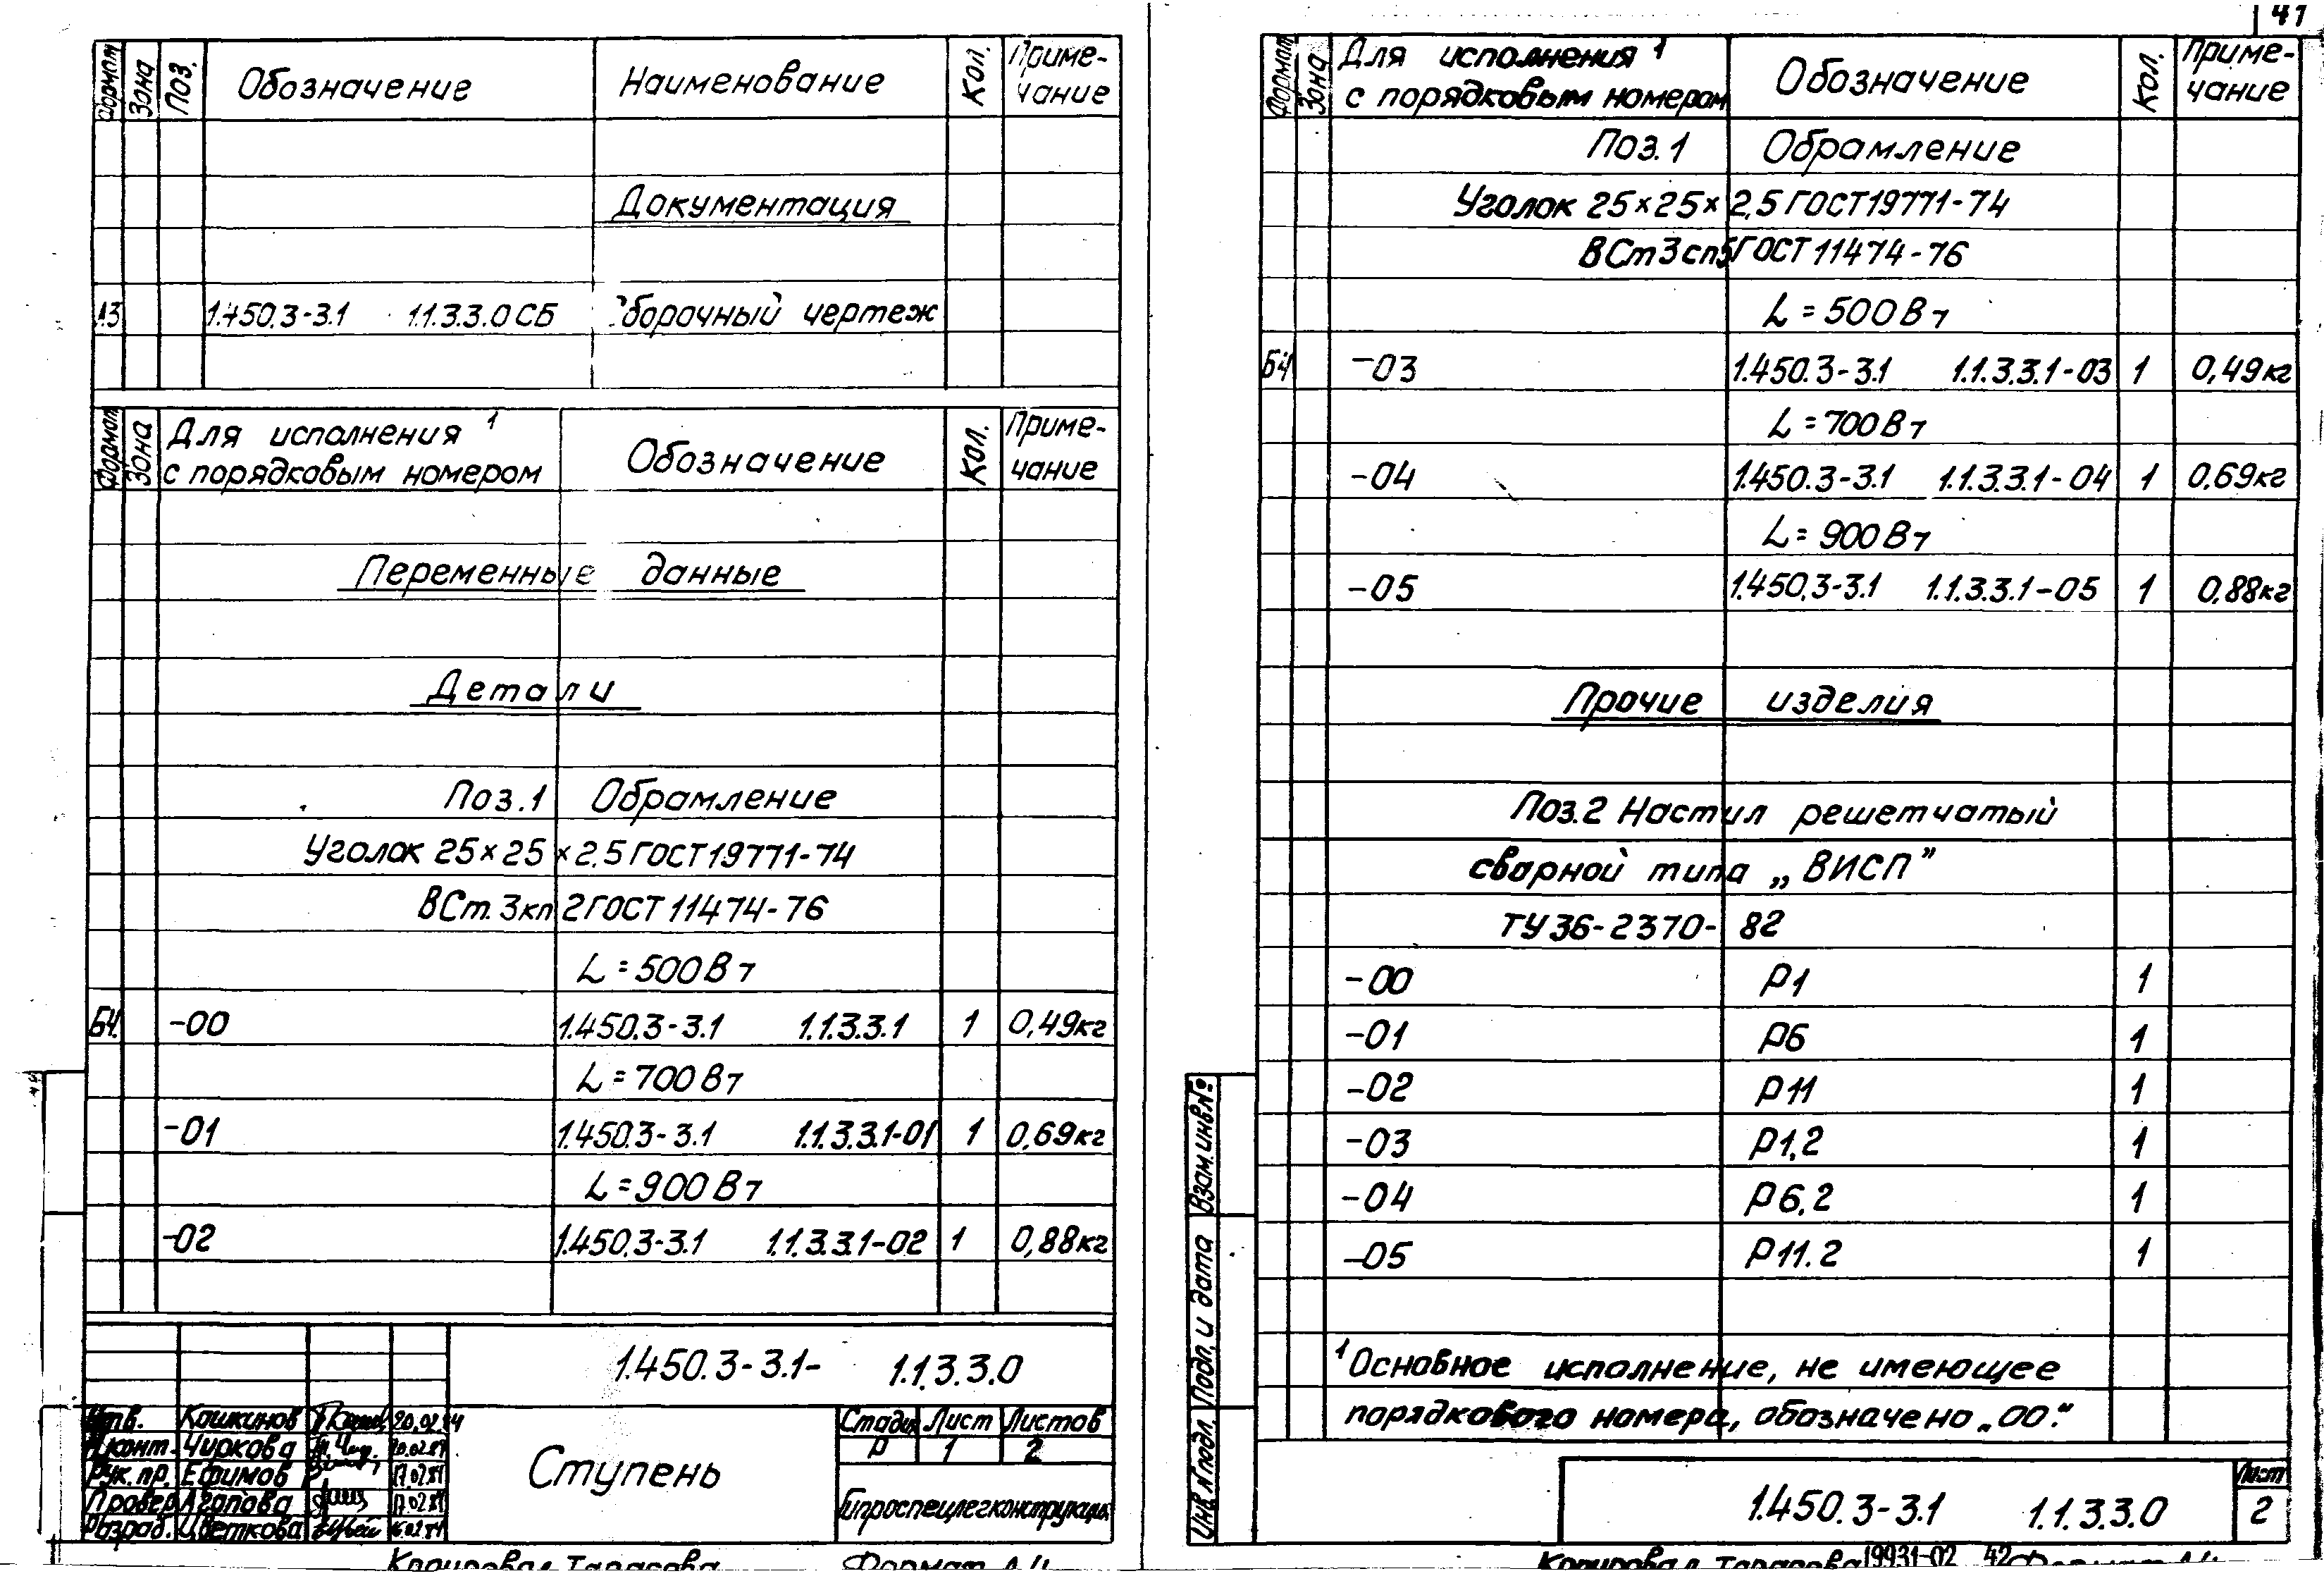 41
Формат Зона Поз. Обозначение Наименование Кол. Приме-чание
Документация
А3 1.450.3-3.1 1.1.3.3.0 СБ Сборочный чертеж
Формат Зона Для исполнения ¹ с порядковым номером Обозначение Кол. Приме-чание
Переменные данные
Детали
Поз.1 Обрамление
Уголок 25×25×2,5 ГОСТ 19771-74
ВСт.3кп2 ГОСТ 11474-76
L=500Вт
БЧ. -00 1.450.3-3.1 1.1.3.3.1 1 0,49кг
L=700Вт
-01 1.450.3-3.1 1.1.3.3.1-01 1 0,69кг
L=900Вт
-02 1.450.3-3.1 1.1.3.3.1-02 1 0,88кг
1.450.3-3.1- 1.1.3.3.0
Утв. Кошкинов 20.02.84
Н.конт. Чиркова 20.02.84
Рук. пр. Ефимов 17.02.84
Провер. Агапова 17.02.84
Разраб. Цветкова 16.02.84
Ступень
Стадия Лист Листов
Р 1 2
Гипроспецлегконструкция
Копировал Тарасова Формат А4
Формат Зона Для исполнения ¹ с порядковым номером Обозначение Кол. Приме-чание
Поз.1 Обрамление
Уголок 25×25×2,5 ГОСТ 19771-74
ВСт3сп5 ГОСТ 11474-76
L=500Вт
БЧ -03 1.450.3-3.1 1.1.3.3.1-03 1 0,49кг
L=700Вт
-04 1.450.3-3.1 1.1.3.3.1-04 1 0,69кг
L=900Вт
-05 1.450.3-3.1 1.1.3.3.1-05 1 0,88кг
Прочие изделия
Поз.2 Настил решетчатый
сварной типа „ВИСП"
ТУ 36-2370-82
-00 Р1 1
-01 Р6 1
-02 Р11 1
-03 Р1,2 1
-04 Р6,2 1
-05 Р11.2 1
¹Основное исполнение, не имеющее
порядкового номера, обозначено „00."
Взам.инв№
Подп. и дата
Инв.№подл.
1.450.3-3.1 1.1.3.3.0
Лист
2
Копировал Тарасова 19931-02 42 Формат А4